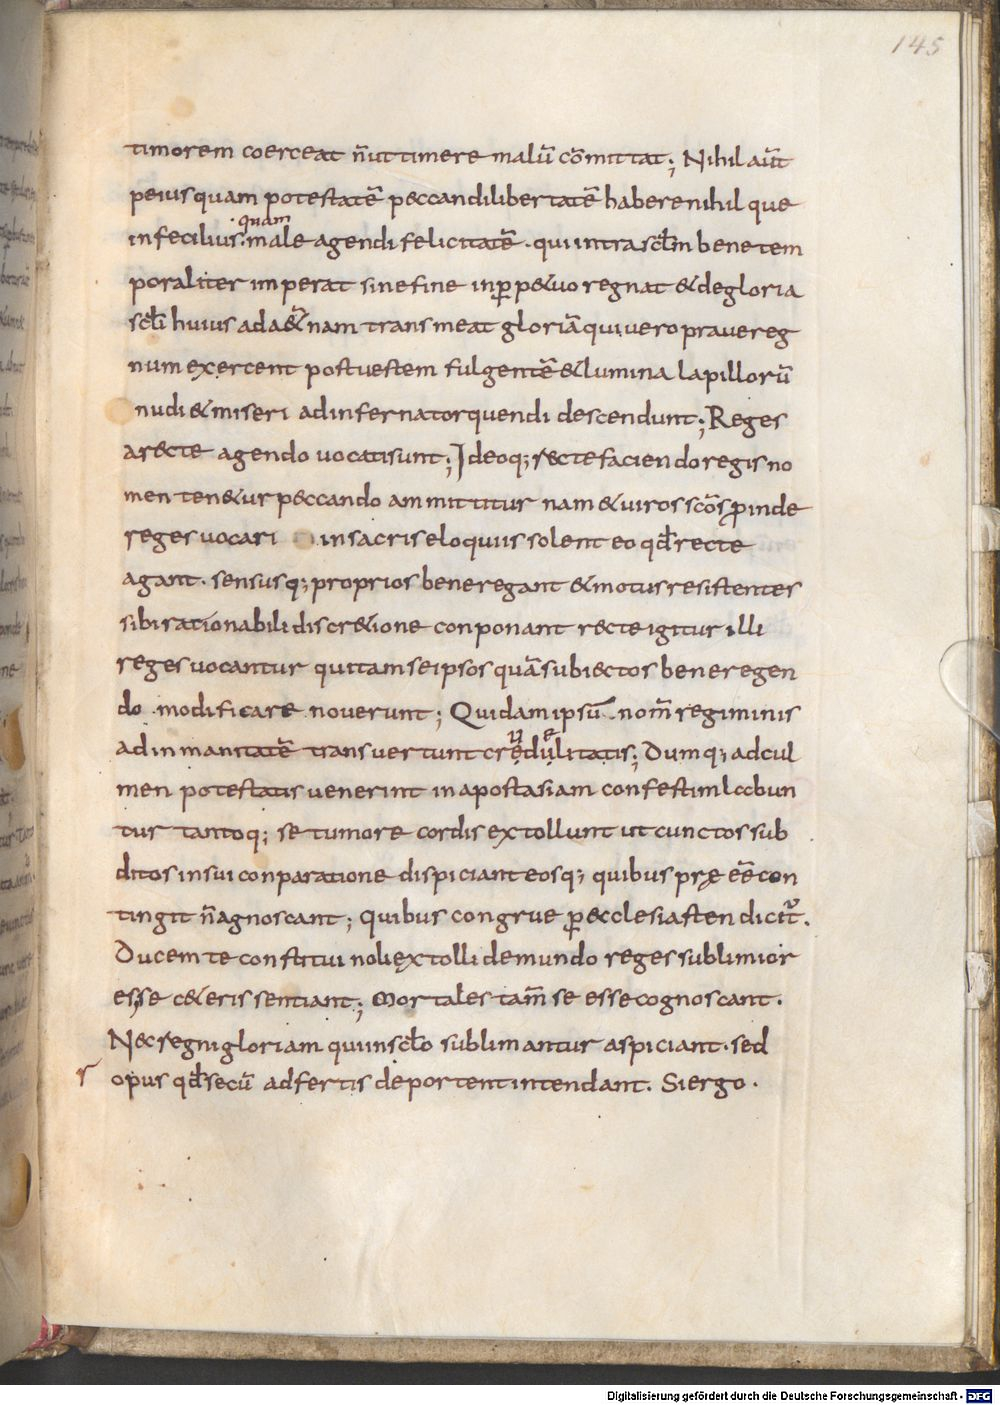 145
timorem coerceat n̄ ut timere malū cōmittat; Nihil aūt
peius quam potestatē peccandi libertatē habere nihil que
quam
infecilius male agendi felicitatē · qui intra sclm̄ bene tem
poraliter imperat sine fine in ꝑp&uo regnat & de gloria
scl̄i huius ad a&̄nam transmeat gloriā qui vero prave reg
num exercent post vestem fulgentē & lumina lapillorū
nudi & miseri ad inferna torquendi descendunt; Reges
a recte agendo vocati sunt; Ideoq; recte faciendo regis no
men ten&ur peccando ammittitur nam & viros sc̄os ꝓinde
reges vocari in sacris eloquiis solent eo qđ recte
agant · sensusq; proprios bene regant & motus resistentes
sibi rationabili discr&ione conponant recte igitur illi
reges vocantur qui tam se ipsos quā subiectos bene regen
do modificare noverunt; Quidam ipsū nom̄ regiminis
u e
ad inmanitatē transvertunt credulitatis; Dumq; ad cul
men potestatis venerint in apostasiam confestim labun
tur tantoq; se tumore cordis extollunt ut cunctos sub
ditos in sui conparatione dispiciant eosq; quibus pręeē con
tingit n̄ agnoscant; quibus congrue ꝑ ecclesiasten dicit᷑.
Ducem te constitui noli extolli de mundo reges sublimior
esse c&eris sentiant; Mortales tam̄ se esse cognoscant.
Nec regni gloriam qui in scl̄o sublimantur aspiciant · sed
r opus qđ secū ad fertis deportent intendant. Si ergo.
Digitalisierung gefördert durch die Deutsche Forschungsgemeinschaft - DFG